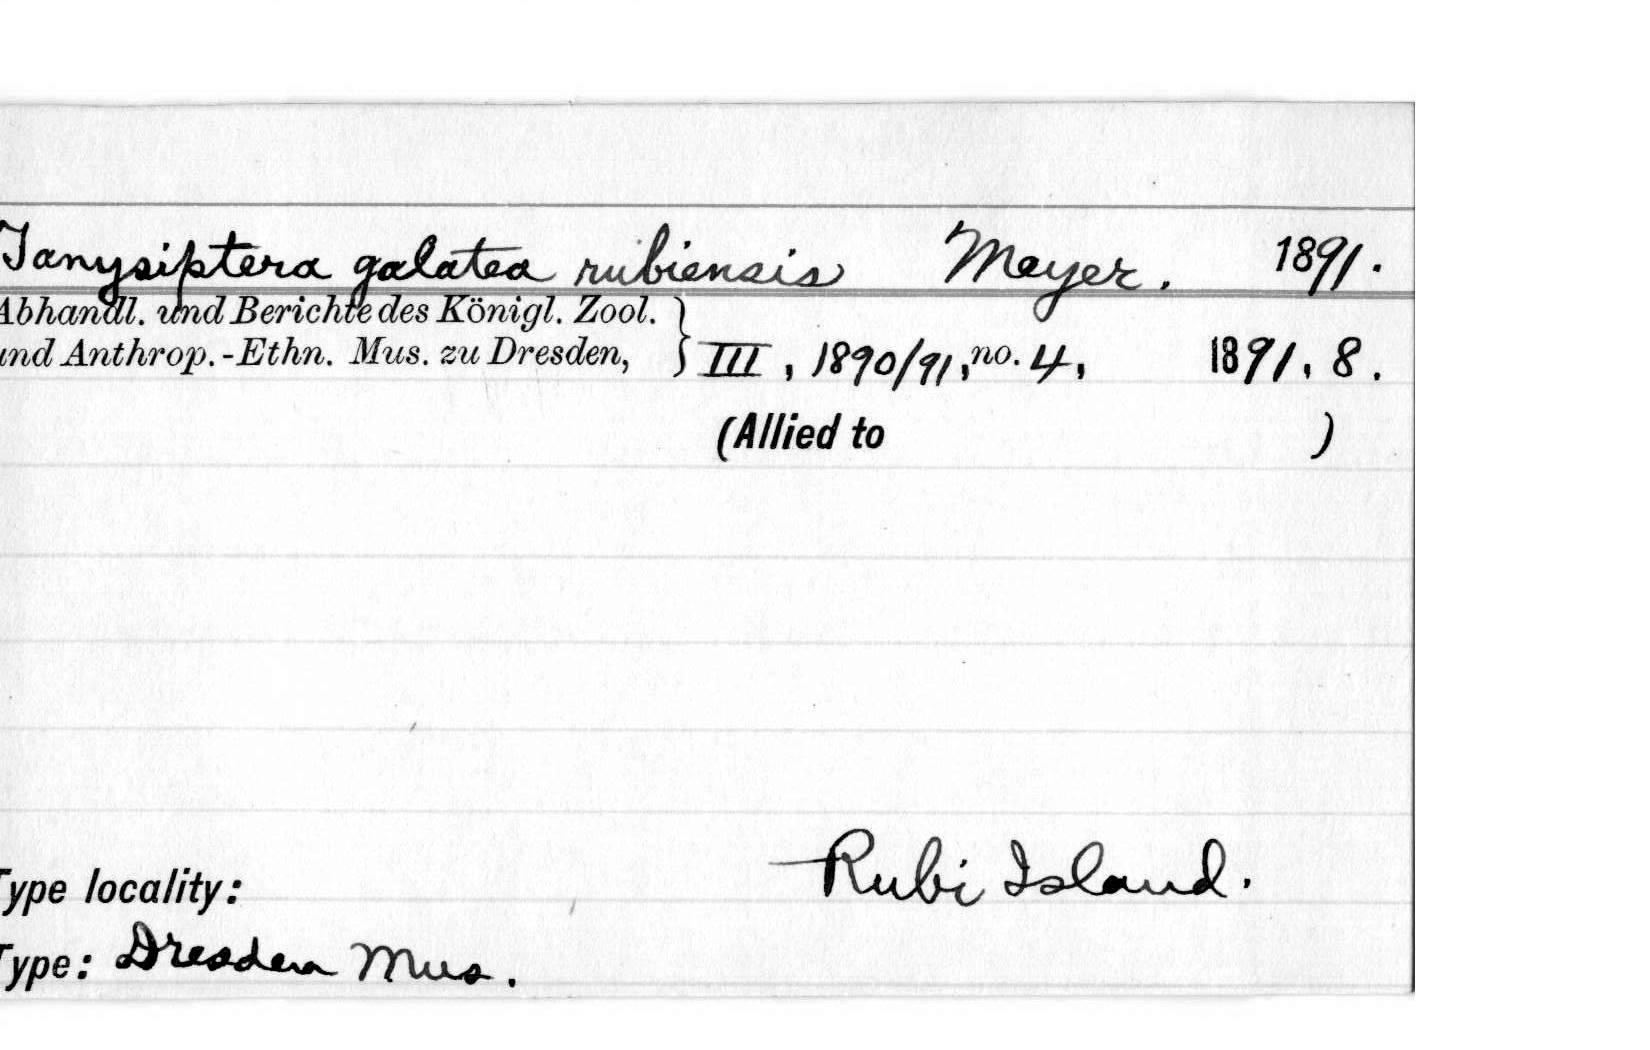 Tanysiptera galatea rubiensis Meyer. 1891.
Abhandl. und Berichte des Königl. Zool.
und Anthrop.-Ethn. Mus. zu Dresden, } III, 1890/91, no. 4, 1891, 8.
(Allied to )
Rubi Island.
Type locality:
Type: Dresden Mus.